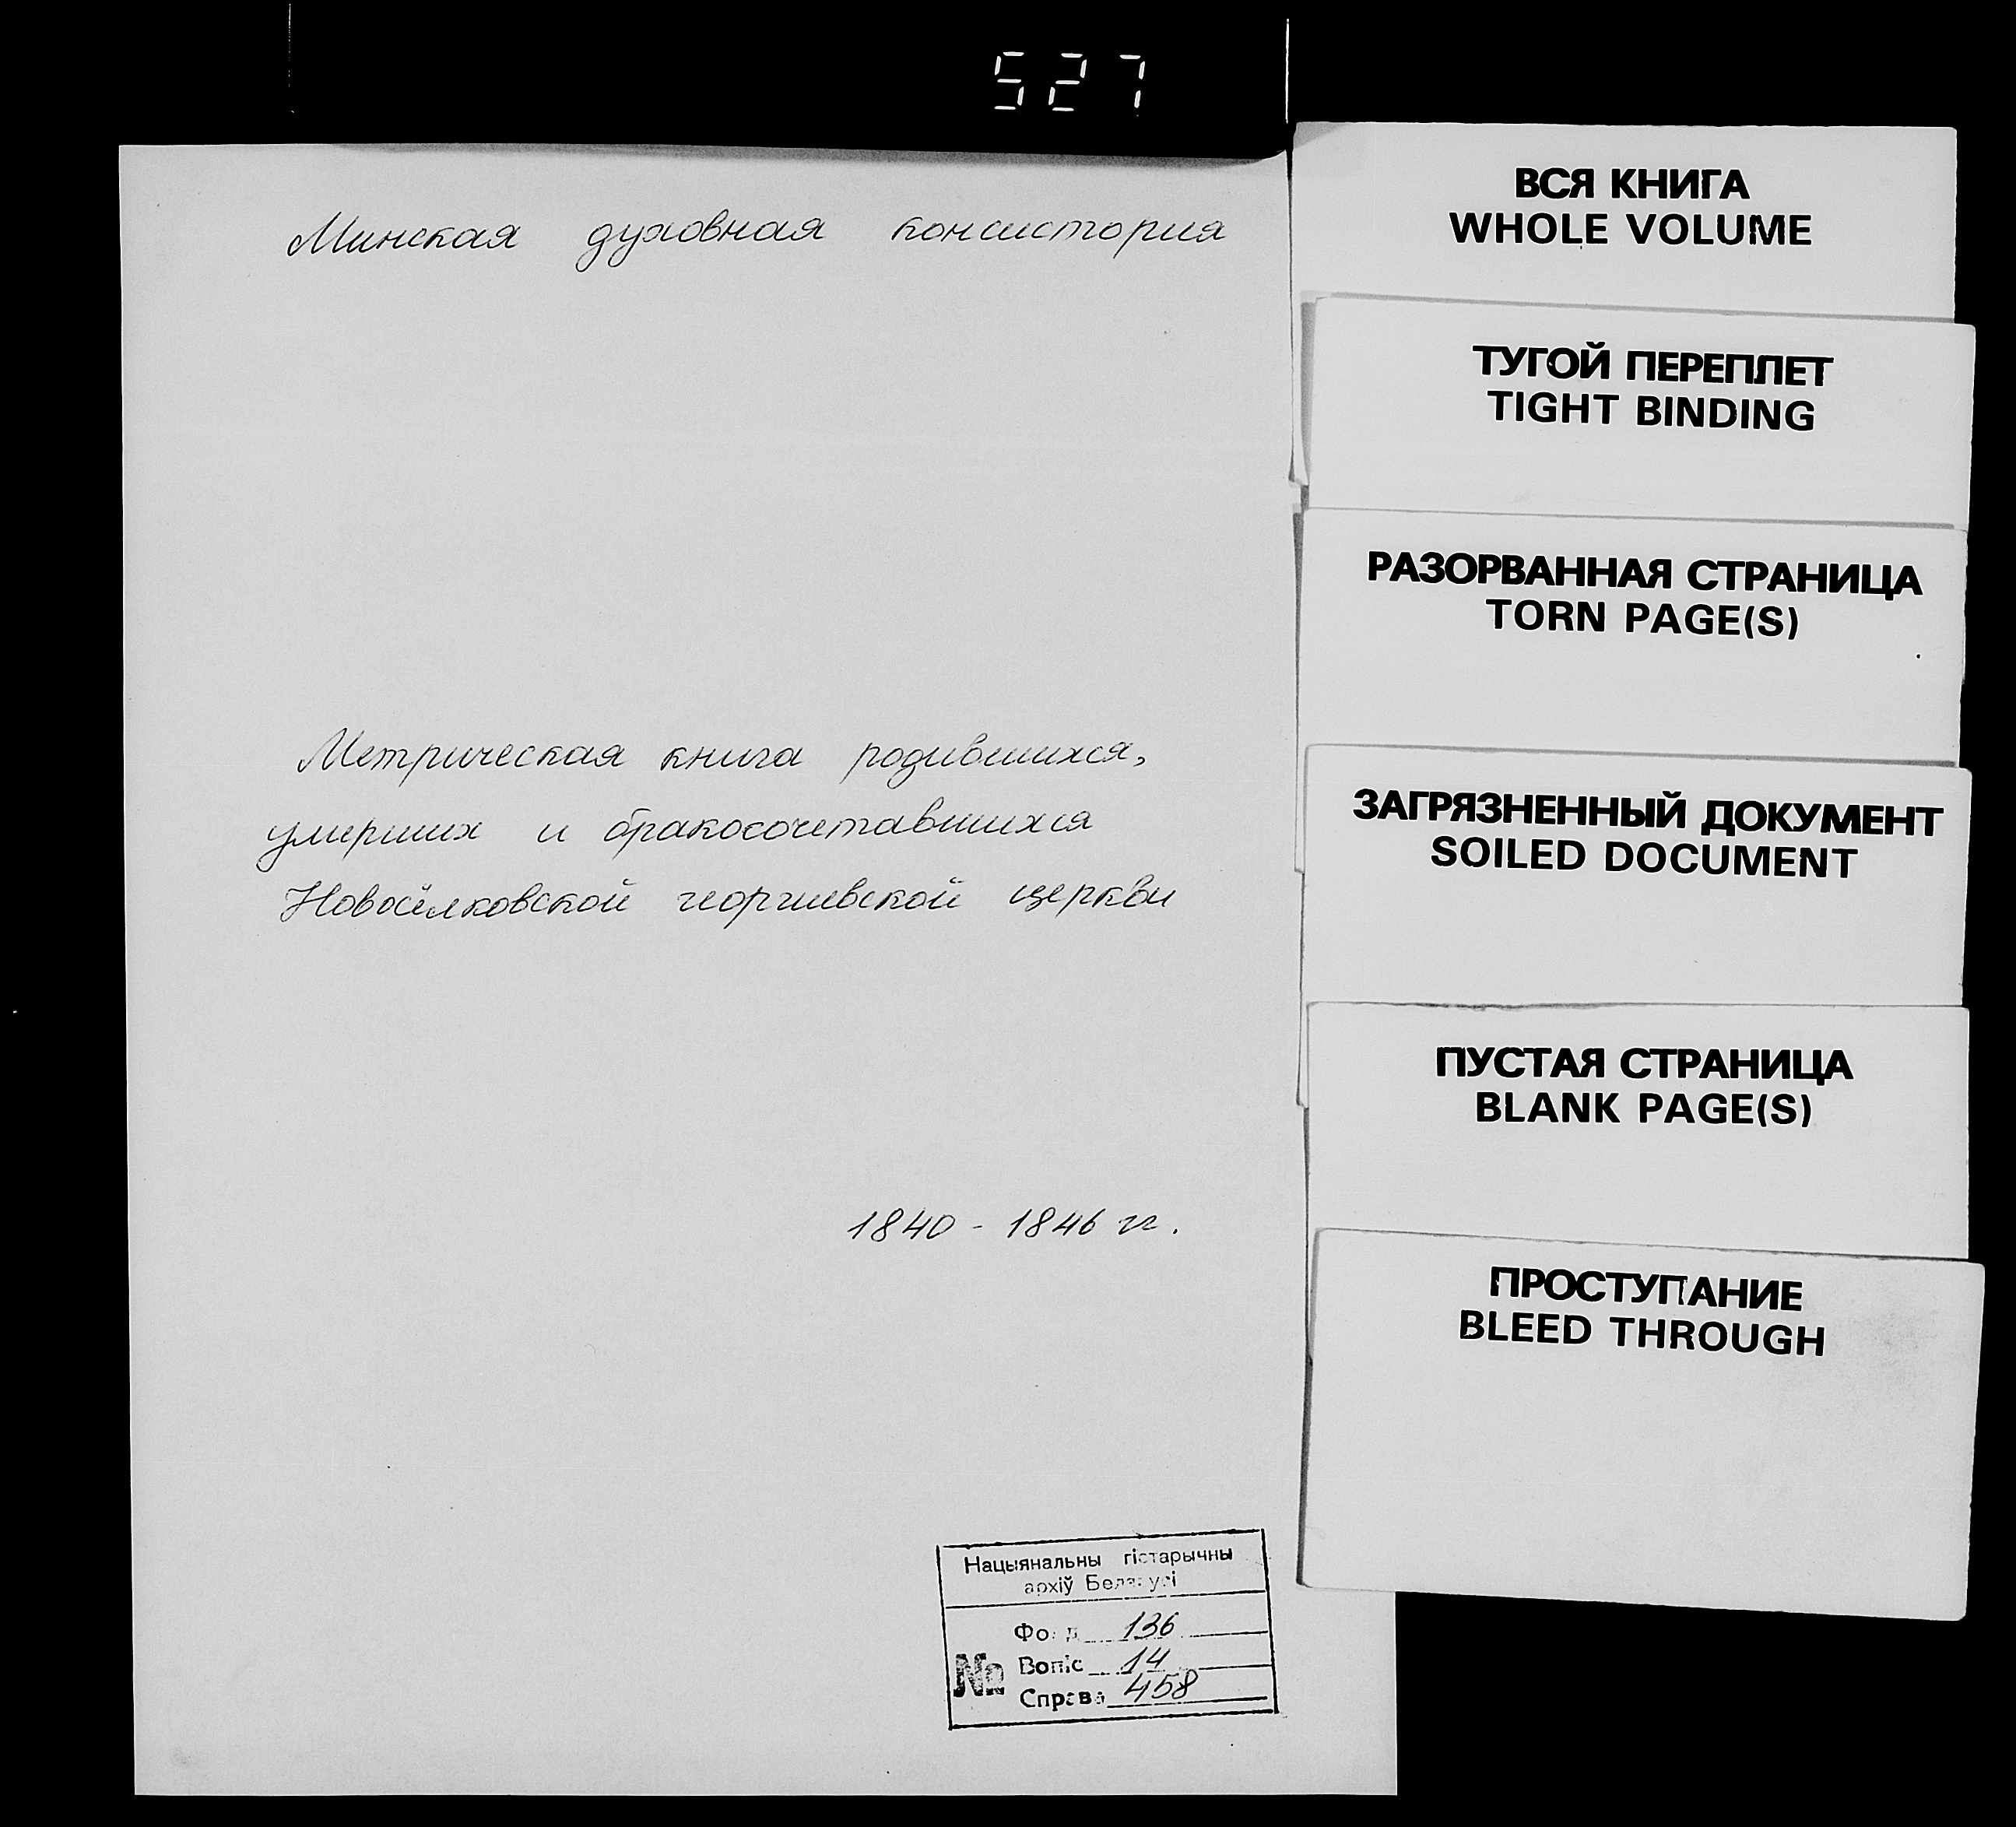 527
Минская духовная консистория
Метрическая книга родившихся,
умерших и бракосочетавшихся
Новосёлковской георгиевской церкви
1840 - 1846 гг.
Нацыянальны гістарычны
архіў Беларусі
Фонд 136
№ Вопіс 14
Справа 458
ВСЯ КНИГА
WHOLE VOLUME
ТУГОЙ ПЕРЕПЛЕТ
TIGHT BINDING
РАЗОРВАННАЯ СТРАНИЦА
TORN PAGE(S)
ЗАГРЯЗНЕННЫЙ ДОКУМЕНТ
SOILED DOCUMENT
ПУСТАЯ СТРАНИЦА
BLANK PAGE(S)
ПРОСТУПАНИЕ
BLEED THROUGH